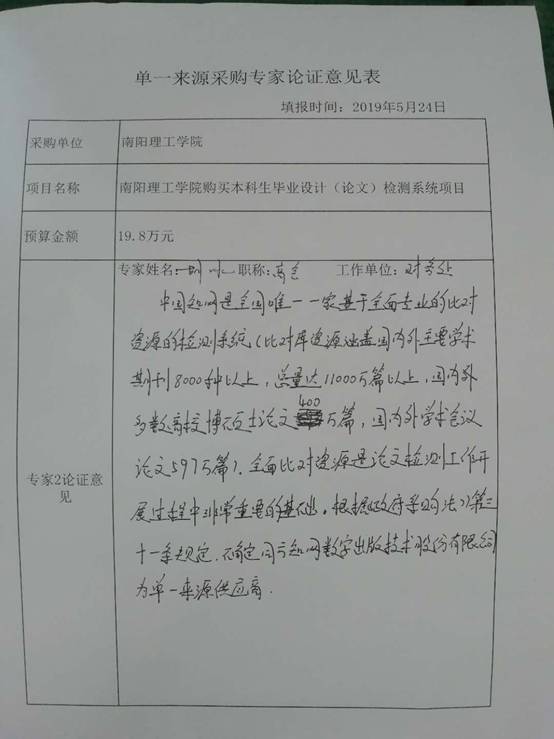 单一来源采购专家论证意见表
填报时间：2019年5月24日
采购单位 南阳理工学院
项目名称 南阳理工学院购买本科生毕业设计（论文）检测系统项目
预算金额 19.8万元
专家2论证意见
专家姓名: 职称:高会 工作单位:财务处
中国知网是全国唯一一家基于全面专业的比对
资源的检测系统(比对库资源涵盖国内外主要学术
期刊8000种以上，总量达11000万篇以上，国内外
多数高校博硕士论文400万篇，国内外学术会议
论文597万篇)。全面比对资源是论文检测工作开
展过程中非常重要的基础。根据《政府采购法》第三
十一条规定，确定同方知网数字出版技术股份有限公司
为单一来源供应商.